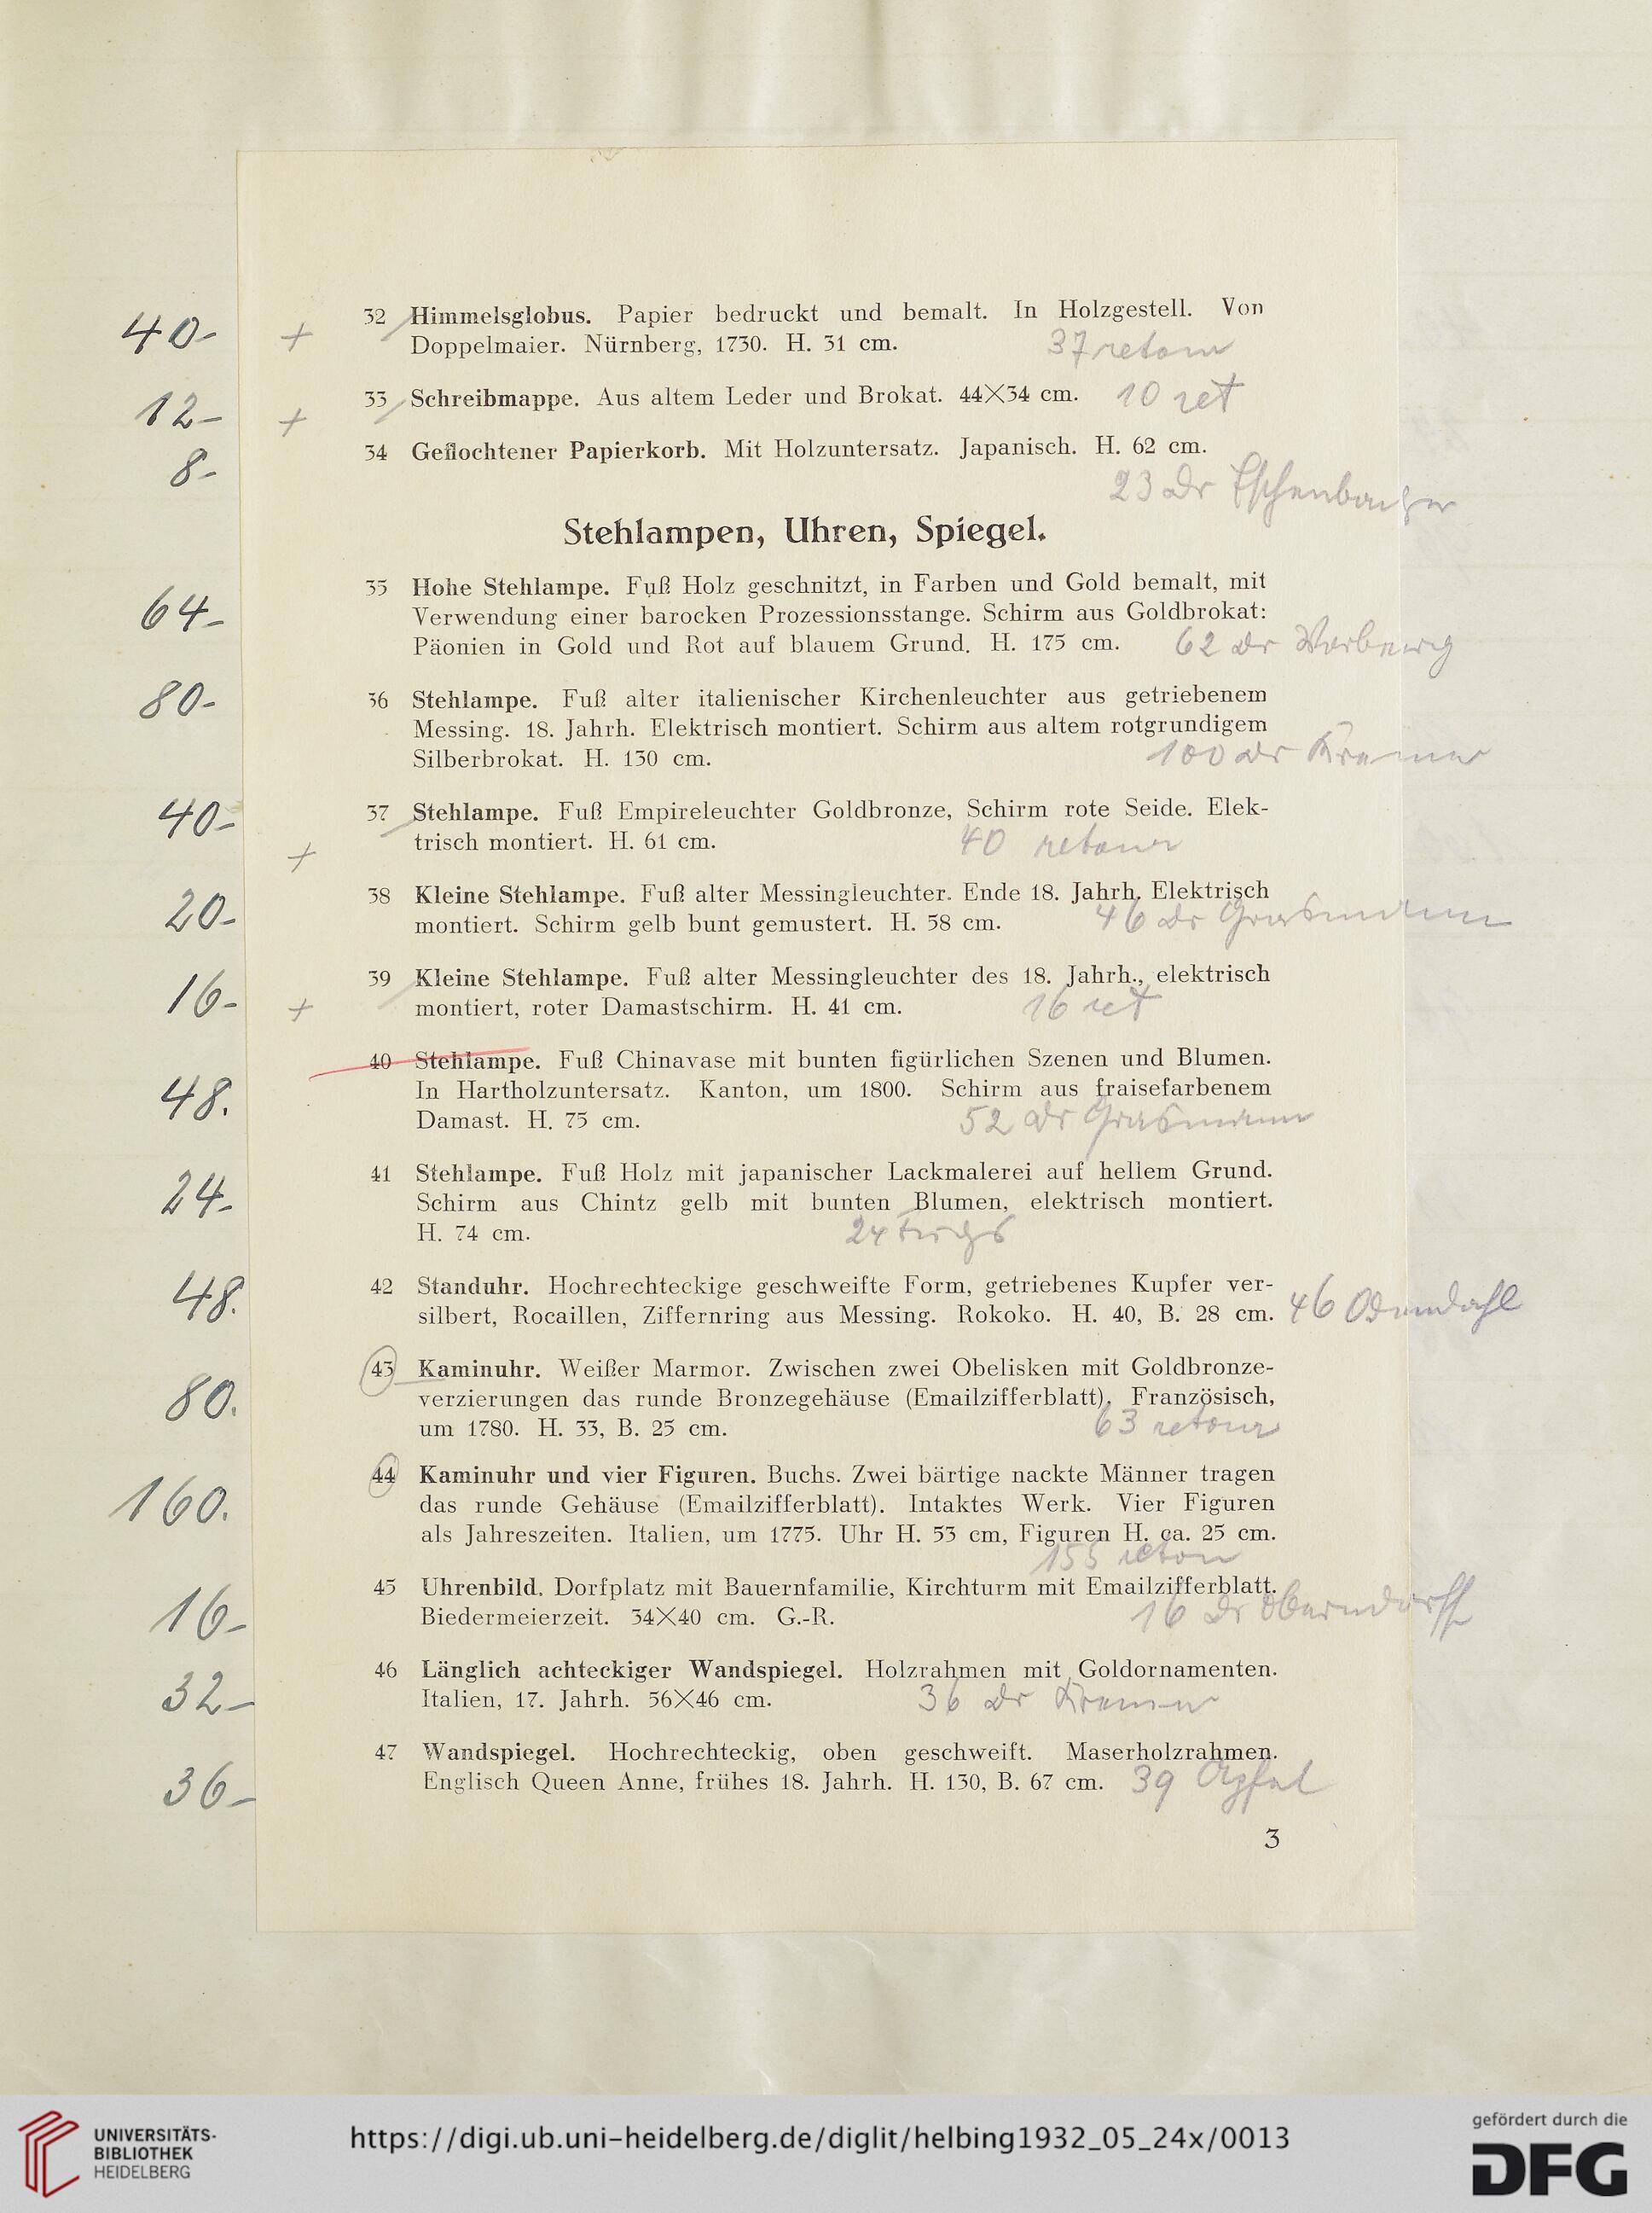 40- + 32 Himmelsglobus. Papier bedruckt und bemalt. In Holzgestell. Von
Doppelmaier. Nürnberg, 1730. H. 31 cm. 37 retour
12- + 33 Schreibmappe. Aus altem Leder und Brokat. 44×34 cm. 10 ret
8- 34 Geflochtener Papierkorb. Mit Holzuntersatz. Japanisch. H. 62 cm.
23 Dr
Stehlampen, Uhren, Spiegel.
64- 35 Hohe Stehlampe. Fuß Holz geschnitzt, in Farben und Gold bemalt, mit
Verwendung einer barocken Prozessionsstange. Schirm aus Goldbrokat:
Päonien in Gold und Rot auf blauem Grund. H. 175 cm. 62 Dr
80- 36 Stehlampe. Fuß alter italienischer Kirchenleuchter aus getriebenem
Messing. 18. Jahrh. Elektrisch montiert. Schirm aus altem rotgrundigem
Silberbrokat. H. 130 cm. 100 Dr
40- + 37 Stehlampe. Fuß Empireleuchter Goldbronze, Schirm rote Seide. Elek-
trisch montiert. H. 61 cm. 40 retour
20- 38 Kleine Stehlampe. Fuß alter Messingleuchter. Ende 18. Jahrh. Elektrisch
montiert. Schirm gelb bunt gemustert. H. 58 cm. 46 Dr Grasmann
16- + 39 Kleine Stehlampe. Fuß alter Messingleuchter des 18. Jahrh., elektrisch
montiert, roter Damastschirm. H. 41 cm. 16 ret
48. 40 Stehlampe. Fuß Chinavase mit bunten figürlichen Szenen und Blumen.
In Hartholzuntersatz. Kanton, um 1800. Schirm aus fraisefarbenem
Damast. H. 75 cm. 52 Dr Grasmann
24- 41 Stehlampe. Fuß Holz mit japanischer Lackmalerei auf hellem Grund.
Schirm aus Chintz gelb mit bunten Blumen, elektrisch montiert.
H. 74 cm. 24
48. 42 Standuhr. Hochrechteckige geschweifte Form, getriebenes Kupfer ver-
silbert, Rocaillen, Ziffernring aus Messing. Rokoko. H. 40, B. 28 cm. 46 Odendahl
80. 43 Kaminuhr. Weißer Marmor. Zwischen zwei Obelisken mit Goldbronze-
verzierungen das runde Bronzegehäuse (Emailzifferblatt). Französisch,
um 1780. H. 33, B. 25 cm. 63 retour
160. 44 Kaminuhr und vier Figuren. Buchs. Zwei bärtige nackte Männer tragen
das runde Gehäuse (Emailzifferblatt). Intaktes Werk. Vier Figuren
als Jahreszeiten. Italien, um 1775. Uhr H. 53 cm, Figuren H. ca. 25 cm.
155 retour
16- 45 Uhrenbild. Dorfplatz mit Bauernfamilie, Kirchturm mit Emailzifferblatt.
Biedermeierzeit. 34×40 cm. G.-R. 16 Dr Oberndorff
32- 46 Länglich achteckiger Wandspiegel. Holzrahmen mit Goldornamenten.
Italien, 17. Jahrh. 56×46 cm. 36 Dr
36- 47 Wandspiegel. Hochrechteckig, oben geschweift. Maserholzrahmen.
Englisch Queen Anne, frühes 18. Jahrh. H. 130, B. 67 cm. 39
3
UNIVERSITÄTS-
BIBLIOTHEK
HEIDELBERG
https://digi.ub.uni-heidelberg.de/diglit/helbing1932_05_24x/0013
gefördert durch die
DFG